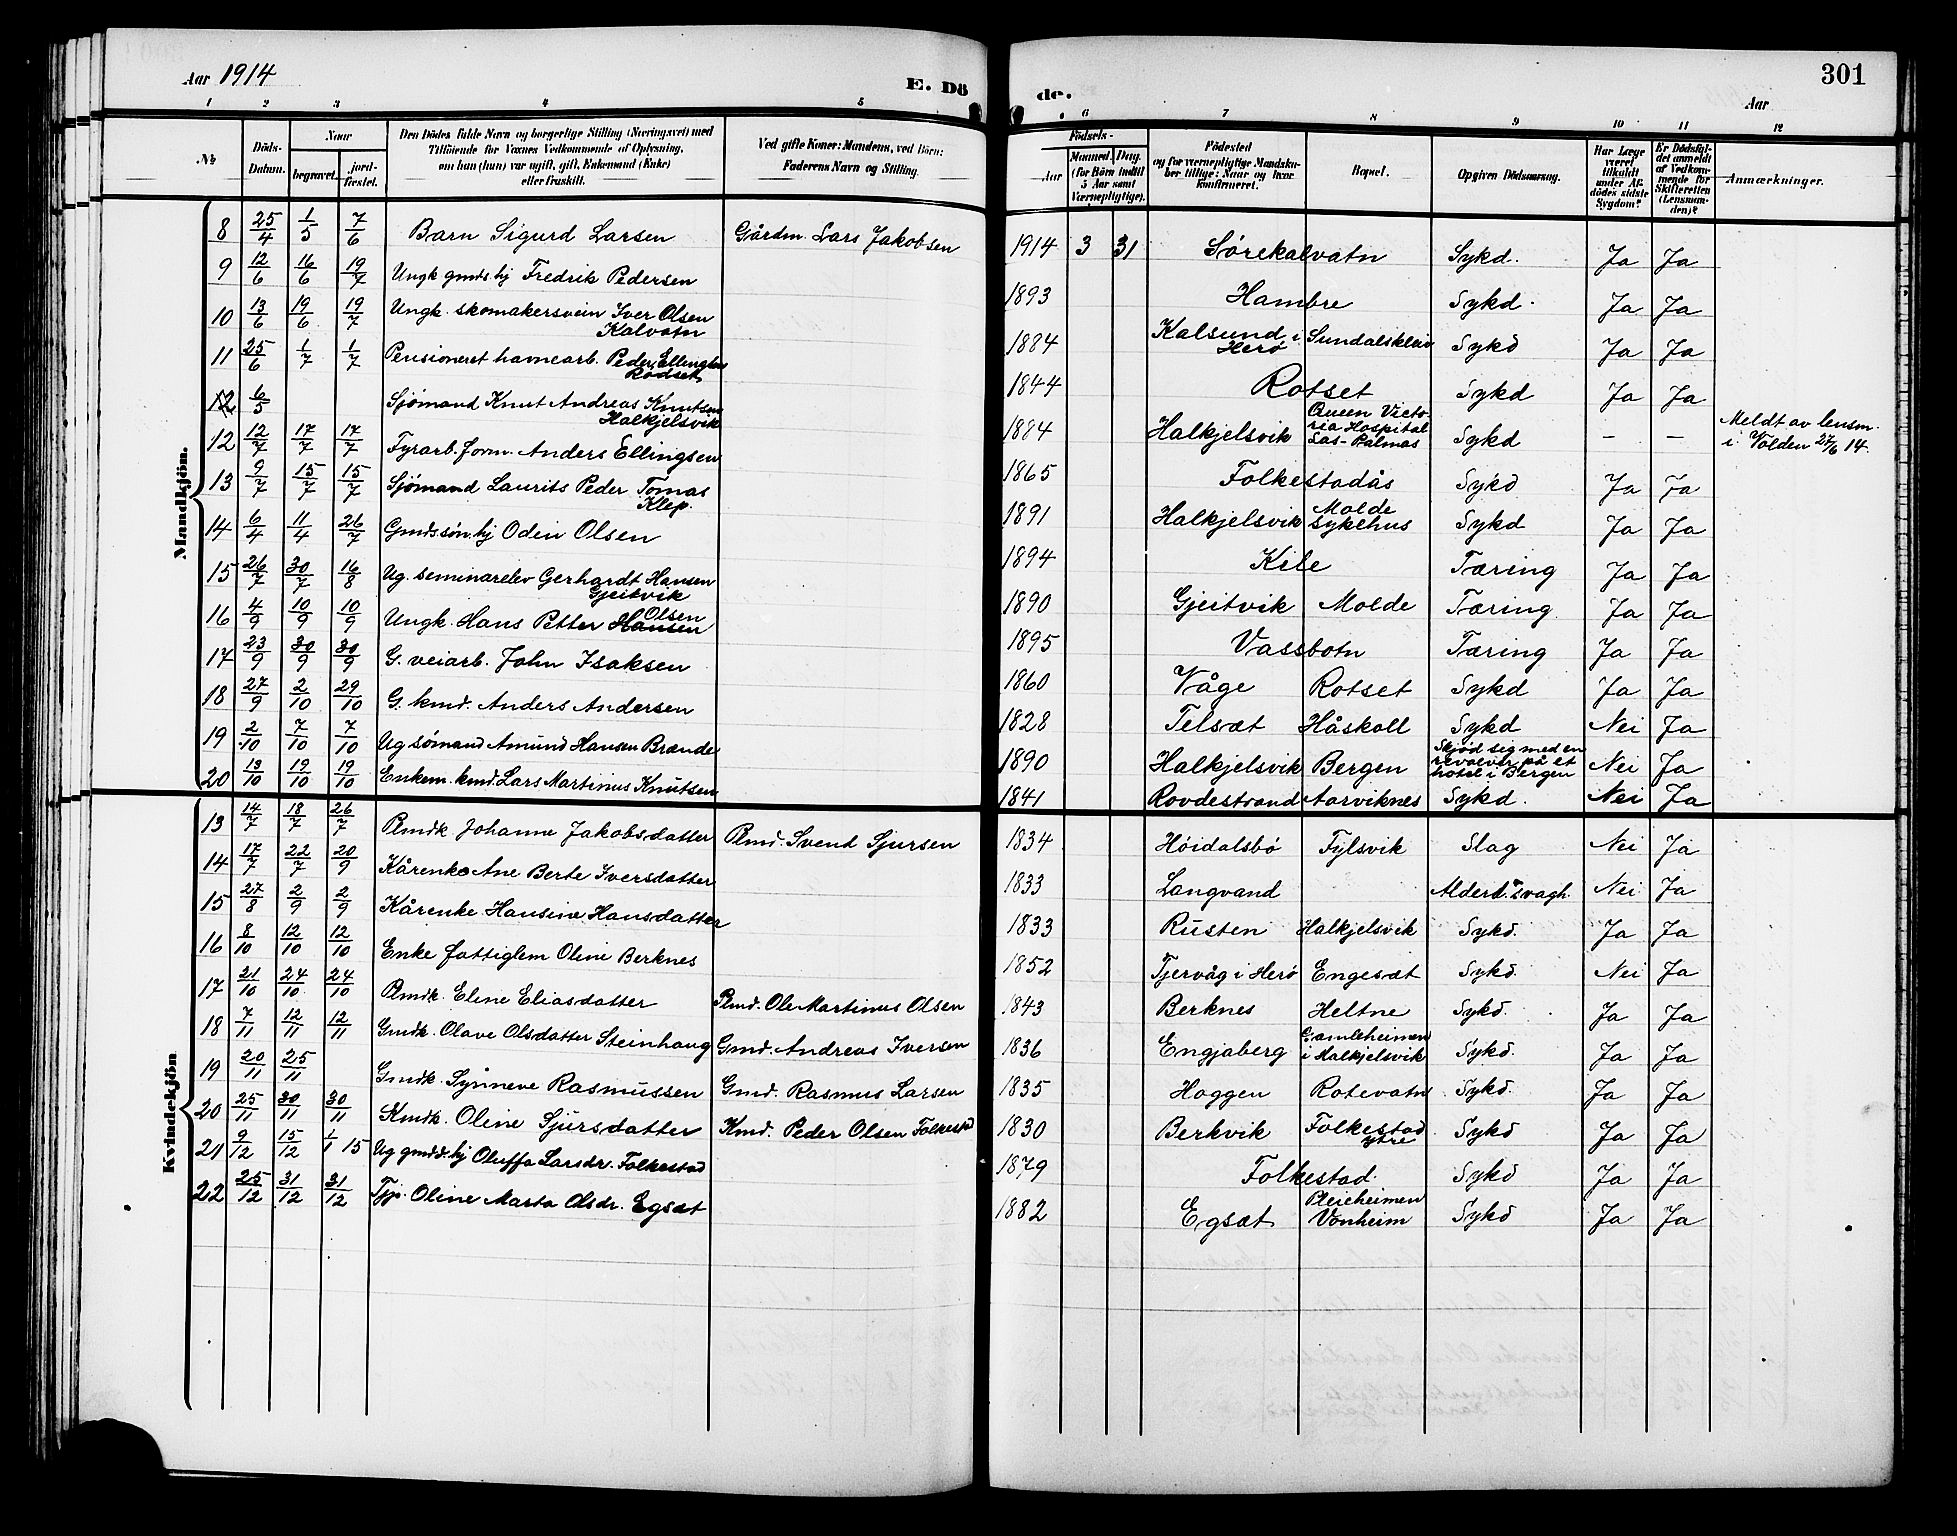 Aar 1914
E. Dö
de.
301
Aar
1 2 3 4 5 6 7 8 9 10 11 12
No
Döds-Datum.
Naar
begravet.
jord-fæstet.
Den Dödes fulde Navn og borgerlige Stilling (Næringsvei) med Tilföiende for Voxnes Vedkommende af Oplysning, om han (hun) var ugift, gift, Enkemand (Enke) eller fraskilt.
Ved gifte Koner: Mandens, ved Börn: Faderens Navn og Stilling.
Födsels-
Aar
Maaned. Dag.
(for Börn indtil 5 Aar samt Værnepligtige).
Födested og for værnepligtige Mandska-ber tillige: Naar og hvor konfirmeret.
Bopæl.
Opgiven Dödsaarsag.
Har Læge været tilkaldt under Af-dödes sidste Sygdom?
Er Dödsfal-det anmeldt af Vedkom-mende for Skifteretten (Lensman-den)?
Anmærkninger.
Mandkjön.
8 25/4 1/5 7/6 Barn Sigurd Larsen Gårdm. Lars Jakobsen 1914 3 31 Sørekalvatn Sykd. Ja Ja
9 12/6 16/6 19/7 Ungk gmds.hj Fredrik Pedersen 1893 Hambre Sykd. Ja Ja
10 13/6 19/6 19/7 Ungk. skomakersvein Iver Olsen Kalvatn 1884 Kalsund i Herø Sundalskleiv Sykd Ja Ja
11 25/6 1/7 1/7 Pensioneret havnearb. Peder Ellingsen Rødset 1844 Rotset Sykd Ja Ja
12 6/5 Sjømand Knut Andreas Knutsen Halkjelsvik 1884 Halkjelsvik Queen Victo-ria Hospital Las-Palmas Sykd – – Meldt av lensm. i Volden 27/6 14.
12 12/7 17/7 17/7 Fyrarb.form. Anders Ellingsen 1865 Folkestadås Sykd Ja Ja
13 9/7 15/7 15/7 Sjømand Laurits Peder Tomas Klep. 1891 Halkjelsvik Molde sykehus Sykd Ja Ja
14 6/4 11/4 26/7 Gmds.søn.hj Odin Olsen 1894 Kile Tæring Ja Ja
15 26/7 30/7 16/8 Ug. seminarelev Gerhardt Hansen Gjeitvik 1890 Gjeitvik Molde Tæring. Ja Ja
16 4/9 10/9 10/9 Ungk. Hans Petter Hansen Olsen 1895 Vassbotn Tæring Ja Ja
17 23/9 30/9 30/9 G. veiarb. John Isaksen 1860 Våge Rotset Sykd Ja Ja
18 27/9 2/10 29/10 G. kmd. Anders Andersen 1828 Telsæt Håskoll Sykd Nei Ja
19 2/10 7/10 7/10 Ug sømand Amund Hansen Brænde 1890 Halkjelsvik Bergen Skjød sig med en revolver på et hotel i Bergen Nei Ja
20 13/10 19/10 19/10 Enkem. kmd. Lars Martinus Knutsen 1841 Rovdestrand Aarviknes Sykd. Nei Ja
Kvindekjön
13 14/7 18/7 26/7 Plmdk Johanne Jakobsdatter Plmd. Svend Sjursen 1834 Høidalsbø Fylsvik Slag Nei Ja
14 17/7 22/7 20/9 Kårenke Ane Berte Iversdatter 1833 Langvand Alderd.svagh. Nei Ja
15 27/8 2/9 2/9 Kårenke Hansine Hansdatter 1833 Rusten Halkjelsvik Sykd. Ja Ja
16 8/10 12/10 12/10 Enke fattiglem Oline Berknes 1852 Tjervåg i Herø Engesæt Sykd. Nei Ja
17 21/10 24/10 24/10 Plmdk. Eline Eliasdatter Plmd. Ole Martinus Olsen 1843 Berknes Heltne Sykd. Ja Ja
18 7/11 12/11 12/11 Gmdk. Olave Olsdatter Steinhaug Gmd. Andreas Iversen 1836 Engjaberg Gamleheimen i Halkjelsvik Sykd. Ja Ja
19 20/11 25/11 Gmdk. Synneve Rasmussen Gmd. Rasmus Larsen 1835 Haggen Rotevatn Sykd. Ja Ja
20 25/11 30/11 30/11 Kmdk. Oline Sjursdatter Kmd. Peder Olsen Folkestad 1830 Berkvik Folkestad ytre Sykd Ja Ja
21 9/12 15/12 1/1 15 Ug gmdd.hj Oluffa Larsdr. Folkestad 1879 Folkestad. Sykd Ja Ja
22 25/12 31/12 31/12 Tjp. Oline Marta Olsdr. Egsæt 1882 Egsæt Pleieheimen Vonheim Sykd Ja Ja